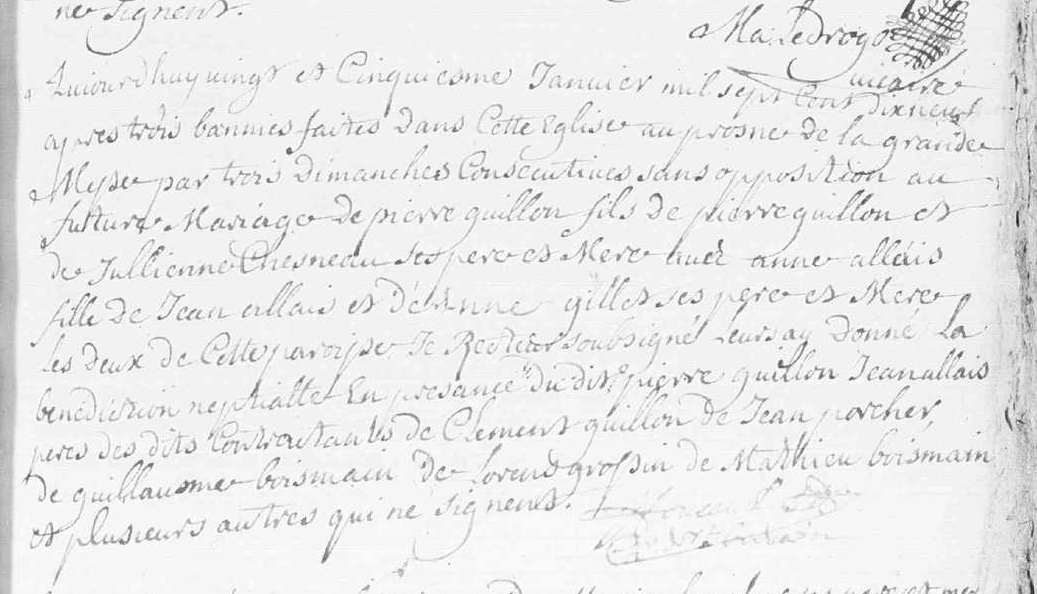 ne signent.
Ma: Ledrogo
vicaire
Aujourdhuy vingt et Cinquiesme Janvier mil sept Cent dixneuf
apres trois bannies faites dans Cette Eglise au prosne de la grande
Messe par trois dimanches Consecutives sans opposition au
future Mariage de pierre guillon fils de pierre guillon et
de Jullienne Chesneau ses pere et Mere avec anne allais
fille de Jean allais et de anne gillet ses pere et Mere
les deux de Cette paroisse Je Recteur soubsigné leurs ay donné La
benediction neptialle En presance du dit pierre guillon Jean allais
peres des dits Contractants de Clement guillon de Jean porcher,
de guillaume boismain de Lorend grossin de Mathieu boismain
et plusieurs autres qui ne signent.